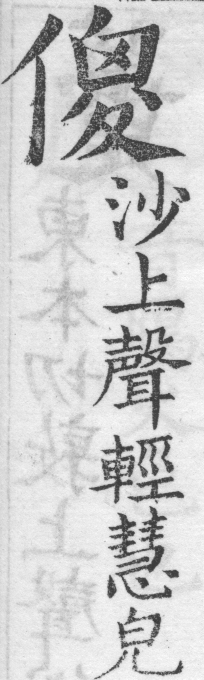 傻
沙上聲輕慧皃